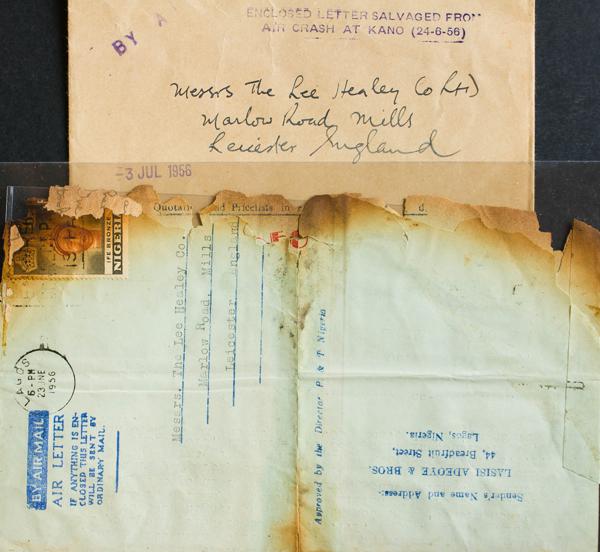 BY A
ENCLOSED LETTER SALVAGED FROM
AIR CRASH AT KANO (24-6-56)
Messrs The Lee Healey Co Ltd
Marlow Road Mills
Leicester England
-3 JUL 1956
Pricelists in
IFE BRONZE
NIGERIA
Messrs. The Lee Healey Co.
Marlow Road, Mills
Leicester, England
LAGOS
6-PM
23 JNE
1956
BY AIR MAIL
AIR LETTER
IF ANYTHING IS EN-
CLOSED THIS LETTER
WILL BE SENT BY
ORDINARY MAIL.
Approved by the Director P. & T. Nigeria
Sender's Name and Address:-
LASISI ADEOYE & BROS.
44, Breadfruit Street,
Lagos, Nigeria.